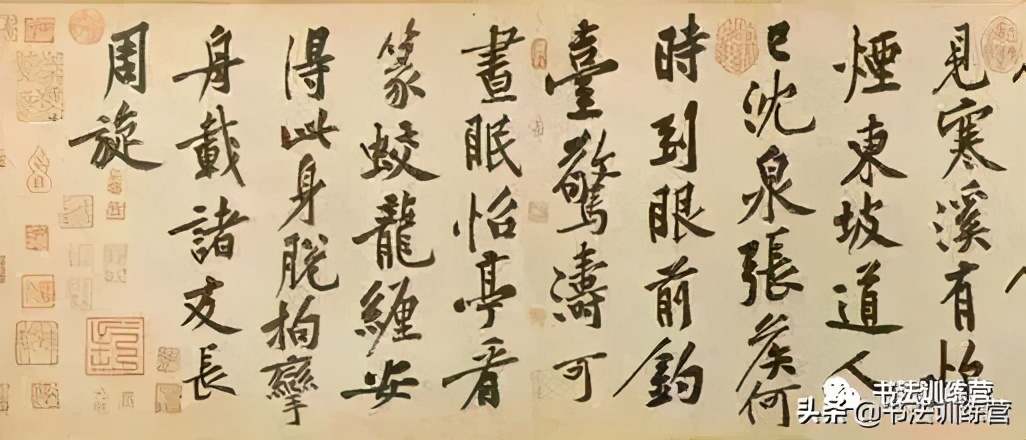 見寒溪有炊
煙東坡道人
已沈泉張侯何
時到眼前釣
臺驚濤可
晝眠怡亭看
篆蛟龍纏安
得此身脫拘攣
舟載諸友長
周旋
书法训练营
头条 @书法训练营